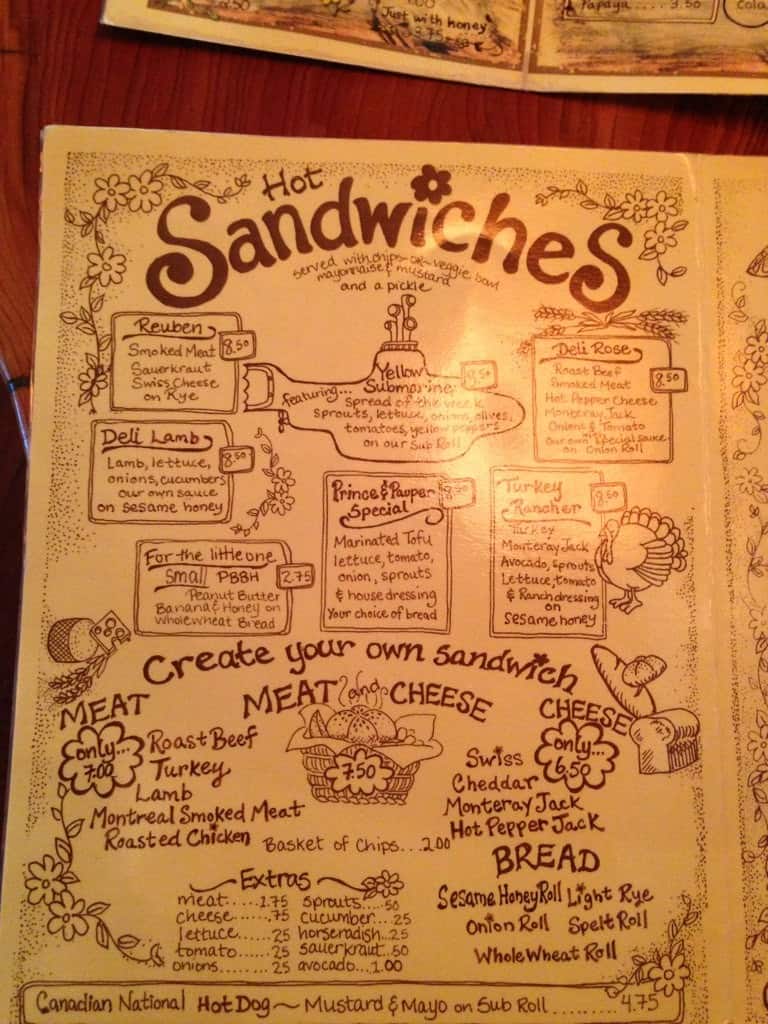 Just with honey
3.75
Papaya .... 3.50
Cola
Hot
Sandwiches
served with chips -or- veggie bowl
mayonnaise & mustard
and a pickle
Reuben
8.50
Smoked Meat
Sauerkraut
Swiss Cheese
on Rye
Yellow
Submarine
8.50
featuring...
Spread of the week
sprouts, lettuce, onions, olives,
tomatoes, yellow peppers
on our Sub Roll
Deli Rose
8.50
Roast Beef
Smoked Meat
Hot Pepper Cheese
Monteray Jack
Onions & Tomato
our own special sauce
on Onion Roll
Deli Lamb
8.50
Lamb, lettuce,
onions, cucumbers
our own sauce
on sesame honey
Prince & Pauper
Special
8.50
Marinated Tofu
lettuce, tomato,
onion, sprouts
& house dressing
Your choice of bread
Turkey
Rancher
8.50
Turkey
Monteray Jack
Avocado, sprouts
Lettuce, tomato
& Ranch dressing
on
sesame honey
For the little one
Small PBBH
2.75
Peanut Butter
Banana & Honey on
Whole Wheat Bread
Create your own sandwich
MEAT
only...
7.00
Roast Beef
Turkey
Lamb
Montreal Smoked Meat
Roasted Chicken
MEAT and CHEESE
7.50
CHEESE
only...
6.50
Swiss
Cheddar
Monteray Jack
Hot Pepper Jack
Basket of Chips...2.00
Extras
meat.....1.75 sprouts....50
cheese.....75 cucumber...25
lettuce.....25 horseradish..25
tomato.....25 sauerkraut..50
onions........25 avocado...1.00
BREAD
Sesame Honey Roll Light Rye
Onion Roll Spelt Roll
Whole Wheat Roll
Canadian National Hot Dog ~ Mustard & Mayo on Sub Roll .......... 4.75